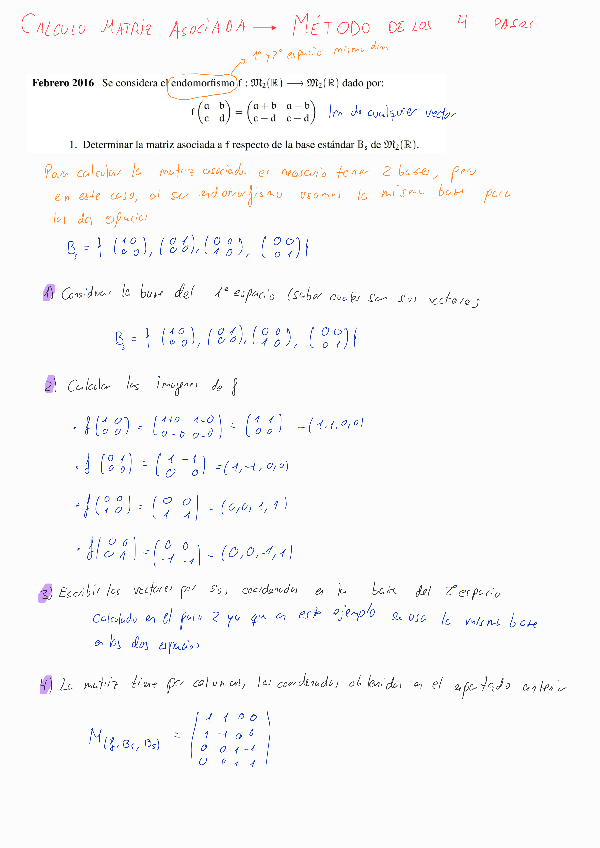 CALCULO MATRIZ ASOCIADA → MÉTODO DE LOS 4 PASOS
1º y 2º espacio misma dim
Febrero 2016 Se considera el endomorfismo f : 𝔐₂(ℝ) ⟶ 𝔐₂(ℝ) dado por:
f (a b; c d) = (a+b a−b; c−d c−d) Im de cualquier vector
1. Determinar la matriz asociada a f respecto de la base estándar Bs de 𝔐₂(ℝ).
Para calcular la matriz asociada es necesario tener 2 bases, pero
en este caso, al ser endomorfismo usamos la misma base para
los dos espacios
Bs = { (1 0; 0 0), (0 1; 0 0), (0 0; 1 0), (0 0; 0 1) }
1) Considerar la base del 1º espacio (saber cuales son sus vectores)
Bs = { (1 0; 0 0), (0 1; 0 0), (0 0; 1 0), (0 0; 0 1) }
2) Calcular las imagenes de f
• f (1 0; 0 0) = (1+0 1-0; 0-0 0-0) = (1 1; 0 0) = (1,1,0,0)
• f (0 1; 0 0) = (1 -1; 0 0) = (1,-1,0,0)
• f (0 0; 1 0) = (0 0; 1 1) = (0,0,1,1)
• f (0 0; 0 1) = (0 0; -1 -1) = (0,0,-1,1)
3) Escribir los vectores por sus coordenadas en la base del 2º espacio
Calculado en el paso 2 ya que en este ejemplo se usa la misma base
en los dos espacios
4) La matriz tiene por columnas, las coordenadas obtenidas en el apartado anterior
M(f, Bs, Bs) = (1 1 0 0; 1 -1 0 0; 0 0 1 -1; 0 0 1 1)